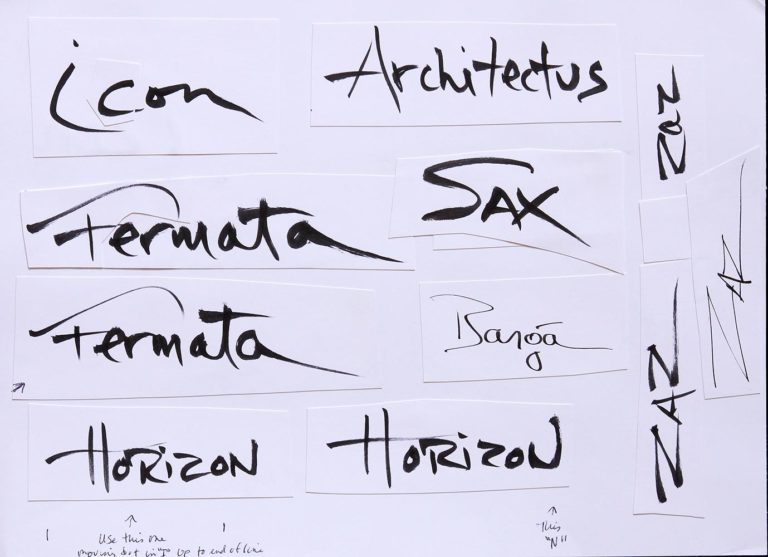 icon
Architectus
zaz
Fermata
SAX
ZAZ
Fermata
ZAZ
HORIZON
HORIZON
Use this one
moving dot in "I" up to end of line
This
"N"